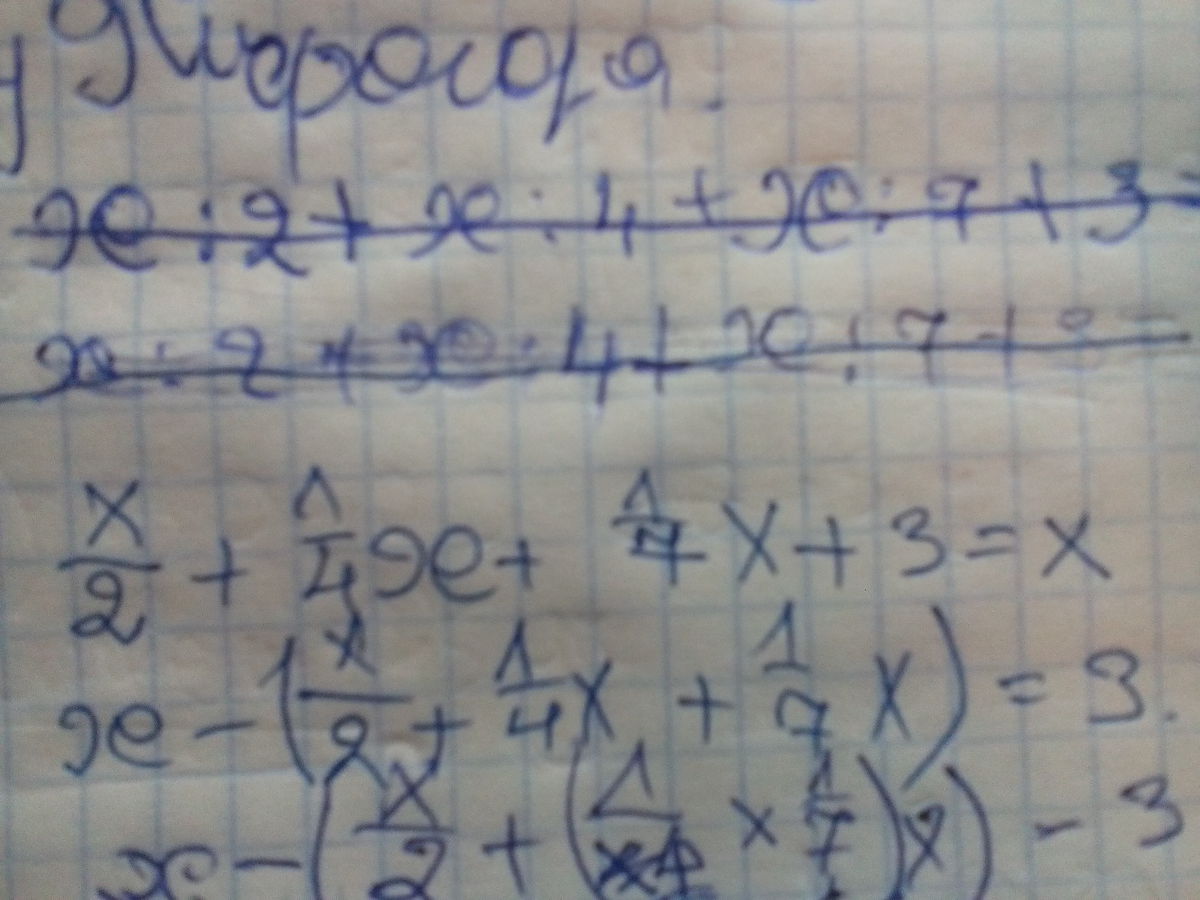 у Пифагора.
x : 2 + x : 4 + x : 7 + 3 =
x : 2 + x : 4 + x : 7 +
x/2 + 1/4 x + 1/7 x + 3 = x
x - (x/2 + 1/4 x + 1/7 x) = 3.
x - (x/2 + (1/4 × 1/7) x) - 3